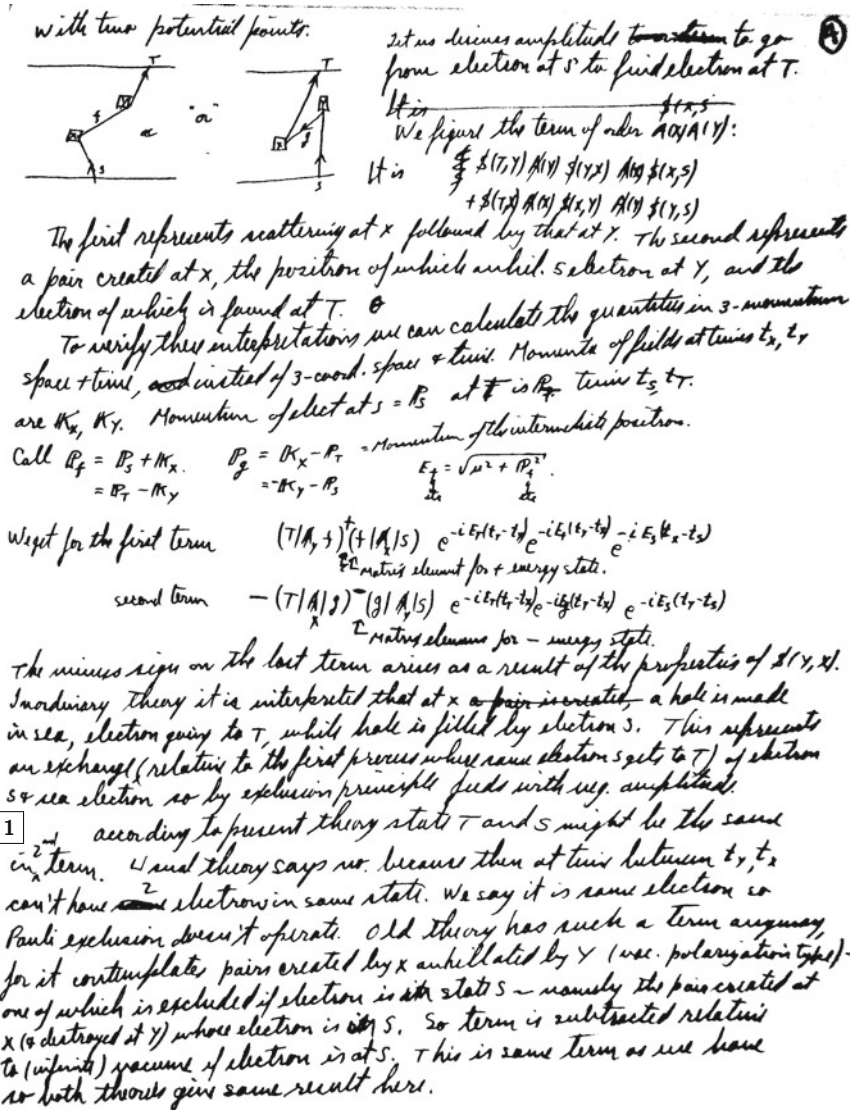 with two potential points.
T
f
x
S
"or"
T
g
x
S
Let us discuss amplitude to go
from electron at S to find electron at T.
It is
We figure the term of order A(X)A(Y):
It is $(T,Y) A(Y) $(Y,X) A(X) $(X,S)
+ $(T,X) A(X) $(X,Y) A(Y) $(Y,S)
The first represents scattering at X followed by that at Y. The second represents
a pair created at X, the positron of which anhil. S electron at Y, and the
electron of which is found at T.
To verify these interpretations we can calculate the quantities in 3-momentum
space + time, instead of 3-coord. space & time. Momenta of fields at times tx, ty
are Kx, Ky. Momentum of elect at S = Ps at T is PT times ts, tT.
Call Pf = Ps + Kx. Pg = Kx - PT = Momentum of the intermediate positron.
= PT - Ky = -Ky - Ps Ef = √μ² + Pf².
etc etc
We get for the first term (T|Ay|f)+(f|Ax|S) e-iET(tT-ty) e-iEf(ty-tx) e-iEs(tx-ts)
Matrix element for + energy state.
second term -(T|Ax|g)-(g|Ay|S) e-iET(tT-tx) e-iEg(ty-tx) e-iEs(ty-ts)
Matrix elemens for - energy state.
The minus sign on the last term arises as a result of the properties of $(Y,X).
In ordinary theory it is interpreted that at X a pair is created, a hole is made
in sea, electron going to T, while hole is filled by electron S. This represents
an exchange (relative to the first process where same electron S gets to T) of electron
S & sea electron so by exclusion principle with neg. amplitude.
1
according to present theory state T and S might be the same
in 2nd term. Usual theory says no. because then at time between ty, tx
can't have 2 electrons in same state. We say it is same electron so
Pauli exclusion doesn't operate. Old theory has such a term anyway,
for it contemplates pairs created by X anhillated by Y (vac. polarization type) -
one of which is excluded if electron is in state S - namely the pair created at
X (& destroyed at Y) whose electron is in S. So term is subtracted relative
to (infinite) vacuum if electron is at S. This is same term as we have
so both theories give same result here.